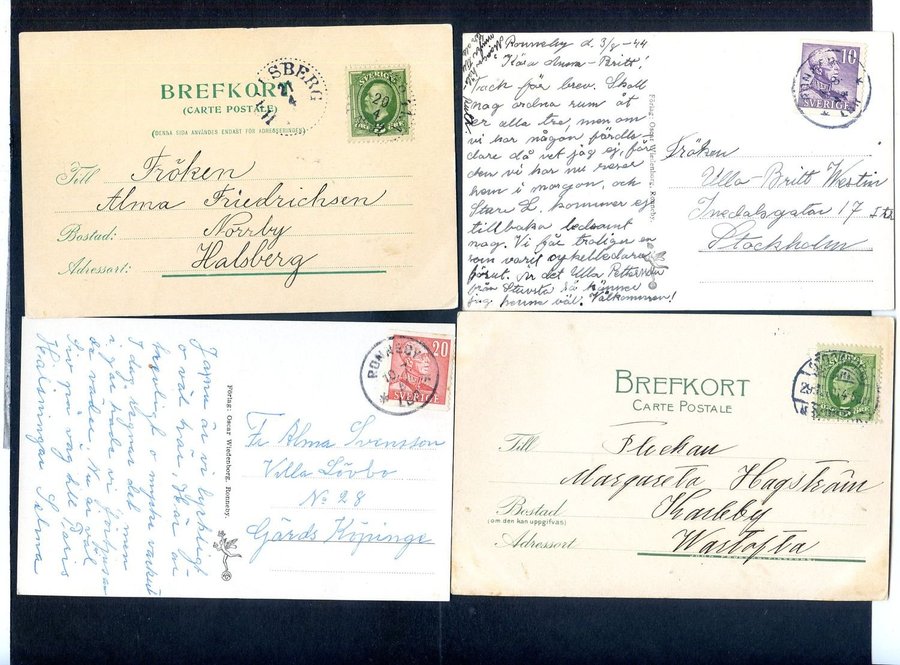 BREFKORT
(CARTE POSTALE)
(DENNA SIDA ANVÄNDES ENDAST FÖR ADRESSERINGEN)
HALSBERG
SVERIGE
5
Till Fröken
Alma Friedrichsen
Bostad: Norrby
Adressort: Halsberg
Ronneby d. 3/8 -44
Kära Anna-Britt!
Tack för brev. Skall
nog ordna rum åt
er alla tre, men om
vi har någon färdle
dare då vet jag ej, för
den vi har nu reser
hem i morgon, och
Sture L. kommer ej
tillbaka ledsamt
nog. Vi får troligen en
som varit cykelledare
förut. Är det Ulla Petterson
från Stuvsta så känner
jag henne väl. Välkommen!
Förlag: Oscar Wiedenborg, Ronneby.
10
SVERIGE
RONNEBY
Fröken
Ulla-Britt Westin
Inedalsgatan 17
Stockholm
Japru är vi lyckligt
o väl här. Här är
trevligt o mycket vackert
I dag regnar det men
i går hade vi
väder. Nu är väl
Siv på väg till Paris
Hälsningar Selma
Förlag: Oscar Wiedenborg, Ronneby.
20
SVERIGE
RONNEBY
LBR
Fr Alma Svensson
Villa Lövbo
No 28
Gärds Köpinge
BREFKORT
CARTE POSTALE
5
Till Flickan
Margareta Hagström
Bostad Karleby
(om den kan uppgifvas)
Adressort Wartofta